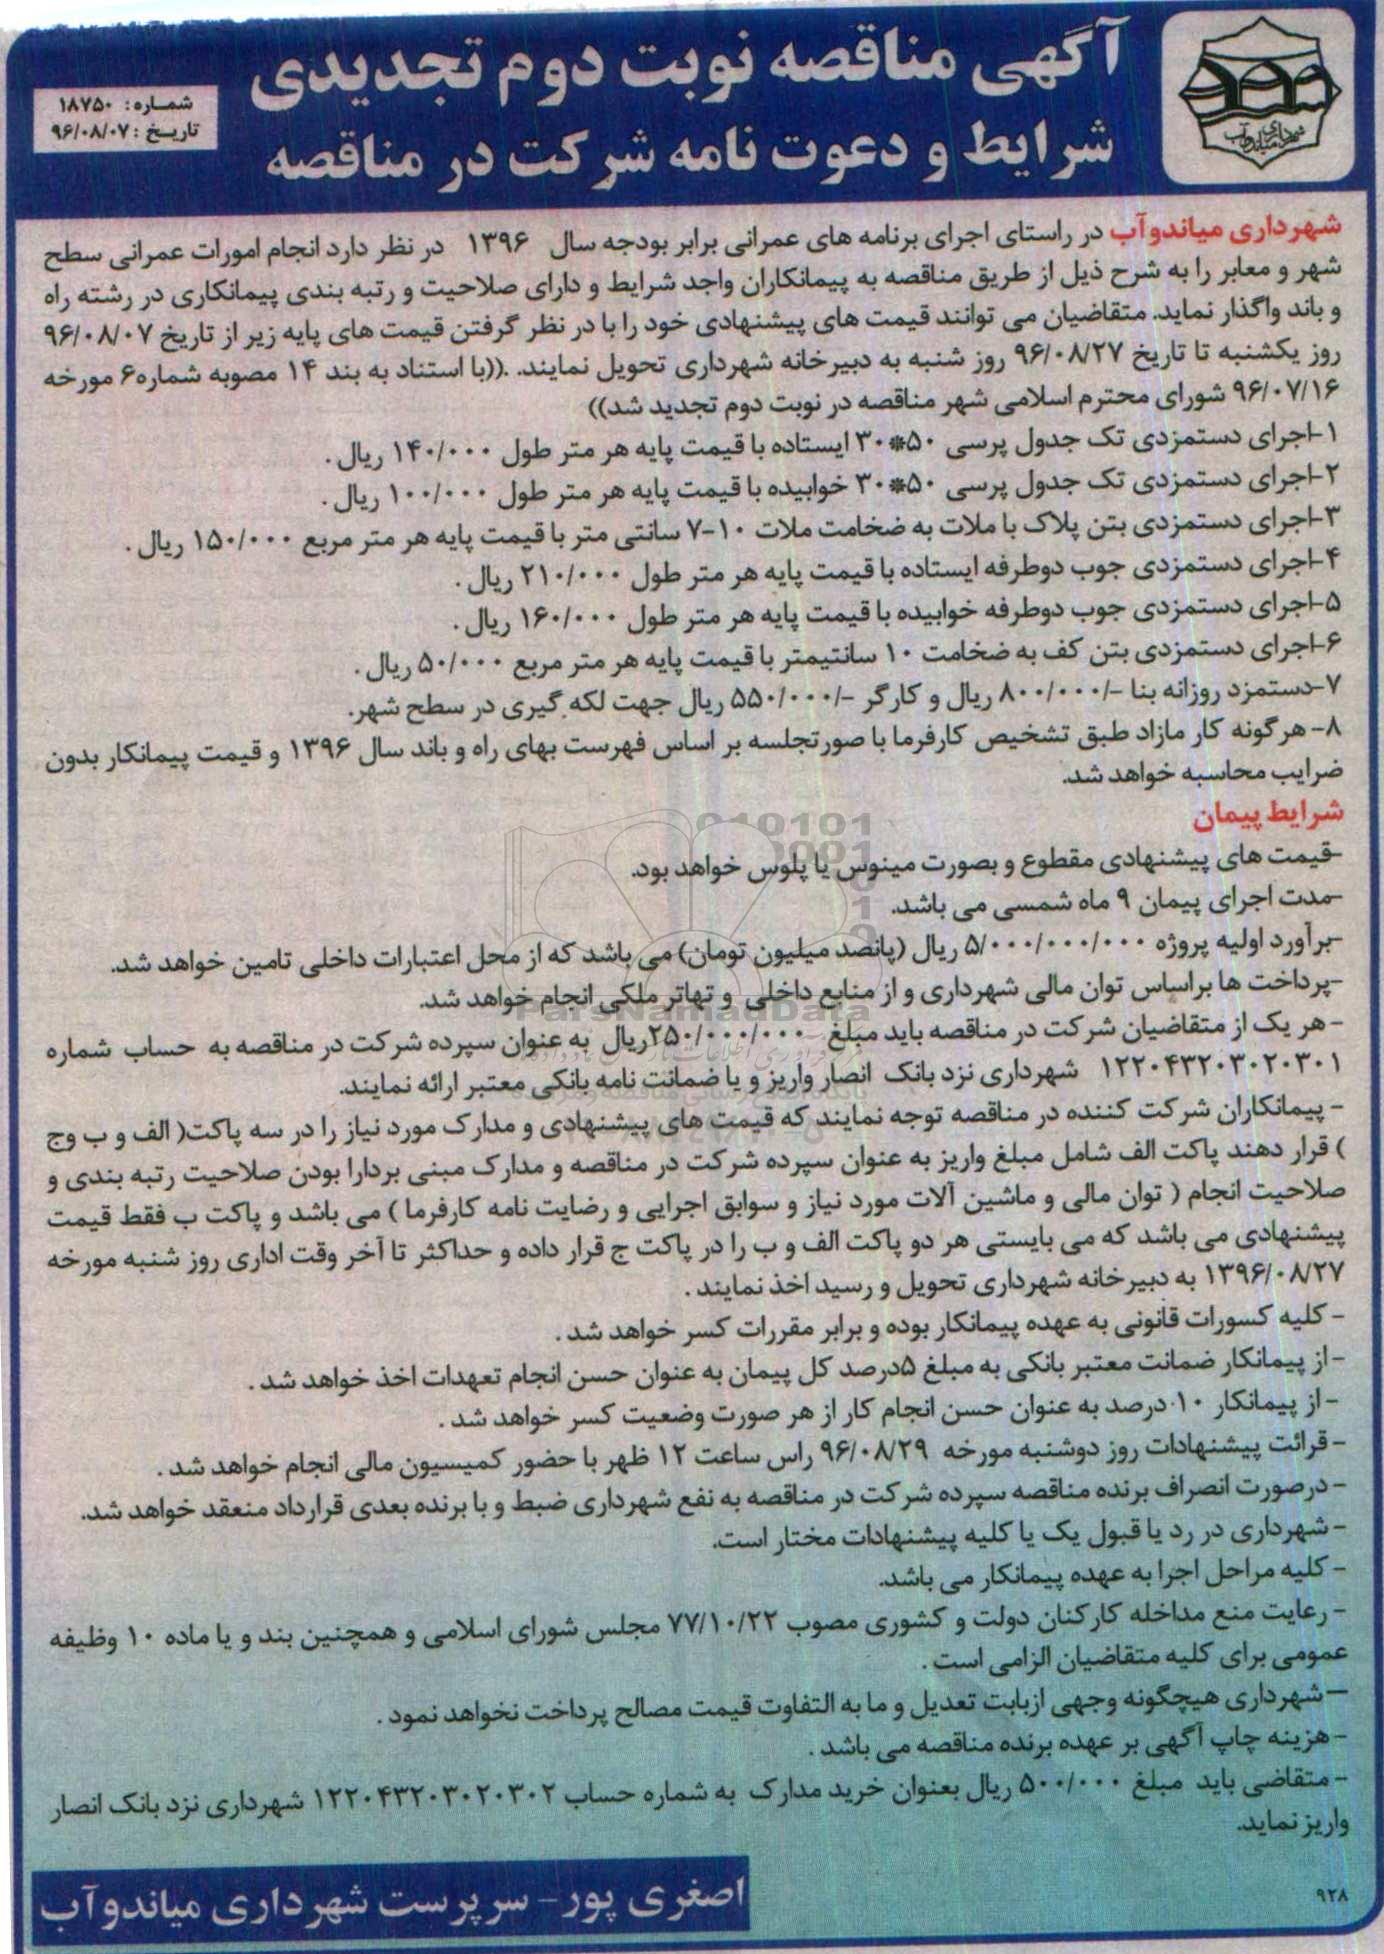 آگهی مناقصه نوبت دوم تجدیدی
شرایط و دعوت نامه شرکت در مناقصه
شماره: ۱۸۷۵۰
تاریخ: ۹۶/۰۸/۰۷
شهرداری میاندوآب
شهرداری میاندوآب در راستای اجرای برنامه های عمرانی برابر بودجه سال ۱۳۹۶ در نظر دارد انجام امورات عمرانی سطح
شهر و معابر را به شرح ذیل از طریق مناقصه به پیمانکاران واجد شرایط و دارای صلاحیت و رتبه بندی پیمانکاری در رشته راه
و باند واگذار نماید. متقاضیان می توانند قیمت های پیشنهادی خود را با در نظر گرفتن قیمت های پایه زیر از تاریخ ۹۶/۰۸/۰۷
روز یکشنبه تا تاریخ ۹۶/۰۸/۲۷ روز شنبه به دبیرخانه شهرداری تحویل نمایند. .((با استناد به بند ۱۴ مصوبه شماره۶ مورخه
۹۶/۰۷/۱۶ شورای محترم اسلامی شهر مناقصه در نوبت دوم تجدید شد))
۱-اجرای دستمزدی تک جدول پرسی ۵۰*۳۰ ایستاده با قیمت پایه هر متر طول ۱۴۰/۰۰۰ ریال .
۲-اجرای دستمزدی تک جدول پرسی ۵۰*۳۰ خوابیده با قیمت پایه هر متر طول ۱۰۰/۰۰۰ ریال .
۳-اجرای دستمزدی بتن پلاک با ملات به ضخامت ملات ۱۰-۷ سانتی متر با قیمت پایه هر متر مربع ۱۵۰/۰۰۰ ریال .
۴-اجرای دستمزدی جوب دوطرفه ایستاده با قیمت پایه هر متر طول ۲۱۰/۰۰۰ ریال .
۵-اجرای دستمزدی جوب دوطرفه خوابیده با قیمت پایه هر متر طول ۱۶۰/۰۰۰ ریال .
۶-اجرای دستمزدی بتن کف به ضخامت ۱۰ سانتیمتر با قیمت پایه هر متر مربع ۵۰/۰۰۰ ریال .
۷-دستمزد روزانه بنا -/۸۰۰/۰۰۰ ریال و کارگر -/۵۵۰/۰۰۰ ریال جهت لکه گیری در سطح شهر.
۸- هرگونه کار مازاد طبق تشخیص کارفرما با صورتجلسه بر اساس فهرست بهای راه و باند سال ۱۳۹۶ و قیمت پیمانکار بدون
ضرایب محاسبه خواهد شد.
شرایط پیمان
-قیمت های پیشنهادی مقطوع و بصورت مینوس یا پلوس خواهد بود.
-مدت اجرای پیمان ۹ ماه شمسی می باشد.
-برآورد اولیه پروژه ۵/۰۰۰/۰۰۰/۰۰۰ ریال (پانصد میلیون تومان) می باشد که از محل اعتبارات داخلی تامین خواهد شد.
-پرداخت ها براساس توان مالی شهرداری و از منابع داخلی و تهاتر ملکی انجام خواهد شد.
ParsNamadData
- هر یک از متقاضیان شرکت در مناقصه باید مبلغ ۲۵۰/۰۰۰/۰۰۰ریال به عنوان سپرده شرکت در مناقصه به حساب شماره
۱۲۲۰۴۳۲۰۳۰۲۰۳۰۱ شهرداری نزد بانک انصار واریز و یا ضمانت نامه بانکی معتبر ارائه نمایند.
- پیمانکاران شرکت کننده در مناقصه توجه نمایند که قیمت های پیشنهادی و مدارک مورد نیاز را در سه پاکت( الف و ب وج
) قرار دهند پاکت الف شامل مبلغ واریز به عنوان سپرده شرکت در مناقصه و مدارک مبنی بردارا بودن صلاحیت رتبه بندی و
صلاحیت انجام ( توان مالی و ماشین آلات مورد نیاز و سوابق اجرایی و رضایت نامه کارفرما ) می باشد و پاکت ب فقط قیمت
پیشنهادی می باشد که می بایستی هر دو پاکت الف و ب را در پاکت ج قرار داده و حداکثر تا آخر وقت اداری روز شنبه مورخه
۱۳۹۶/۰۸/۲۷ به دبیرخانه شهرداری تحویل و رسید اخذ نمایند .
- کلیه کسورات قانونی به عهده پیمانکار بوده و برابر مقررات کسر خواهد شد .
- از پیمانکار ضمانت معتبر بانکی به مبلغ ۵درصد کل پیمان به عنوان حسن انجام تعهدات اخذ خواهد شد .
- از پیمانکار ۱۰ درصد به عنوان حسن انجام کار از هر صورت وضعیت کسر خواهد شد .
- قرائت پیشنهادات روز دوشنبه مورخه ۹۶/۰۸/۲۹ راس ساعت ۱۲ ظهر با حضور کمیسیون مالی انجام خواهد شد .
- درصورت انصراف برنده مناقصه سپرده شرکت در مناقصه به نفع شهرداری ضبط و با برنده بعدی قرارداد منعقد خواهد شد.
- شهرداری در رد یا قبول یک یا کلیه پیشنهادات مختار است.
- کلیه مراحل اجرا به عهده پیمانکار می باشد.
- رعایت منع مداخله کارکنان دولت و کشوری مصوب ۷۷/۱۰/۲۲ مجلس شورای اسلامی و همچنین بند و یا ماده ۱۰ وظیفه
عمومی برای کلیه متقاضیان الزامی است .
-شهرداری هیچگونه وجهی ازبابت تعدیل و ما به التفاوت قیمت مصالح پرداخت نخواهد نمود .
- هزینه چاپ آگهی بر عهده برنده مناقصه می باشد .
- متقاضی باید مبلغ ۵۰۰/۰۰۰ ریال بعنوان خرید مدارک به شماره حساب ۱۲۲۰۴۳۲۰۳۰۲۰۳۰۲ شهرداری نزد بانک انصار
واریز نماید.
۹۲۸
اصغری پور- سرپرست شهرداری میاندوآب